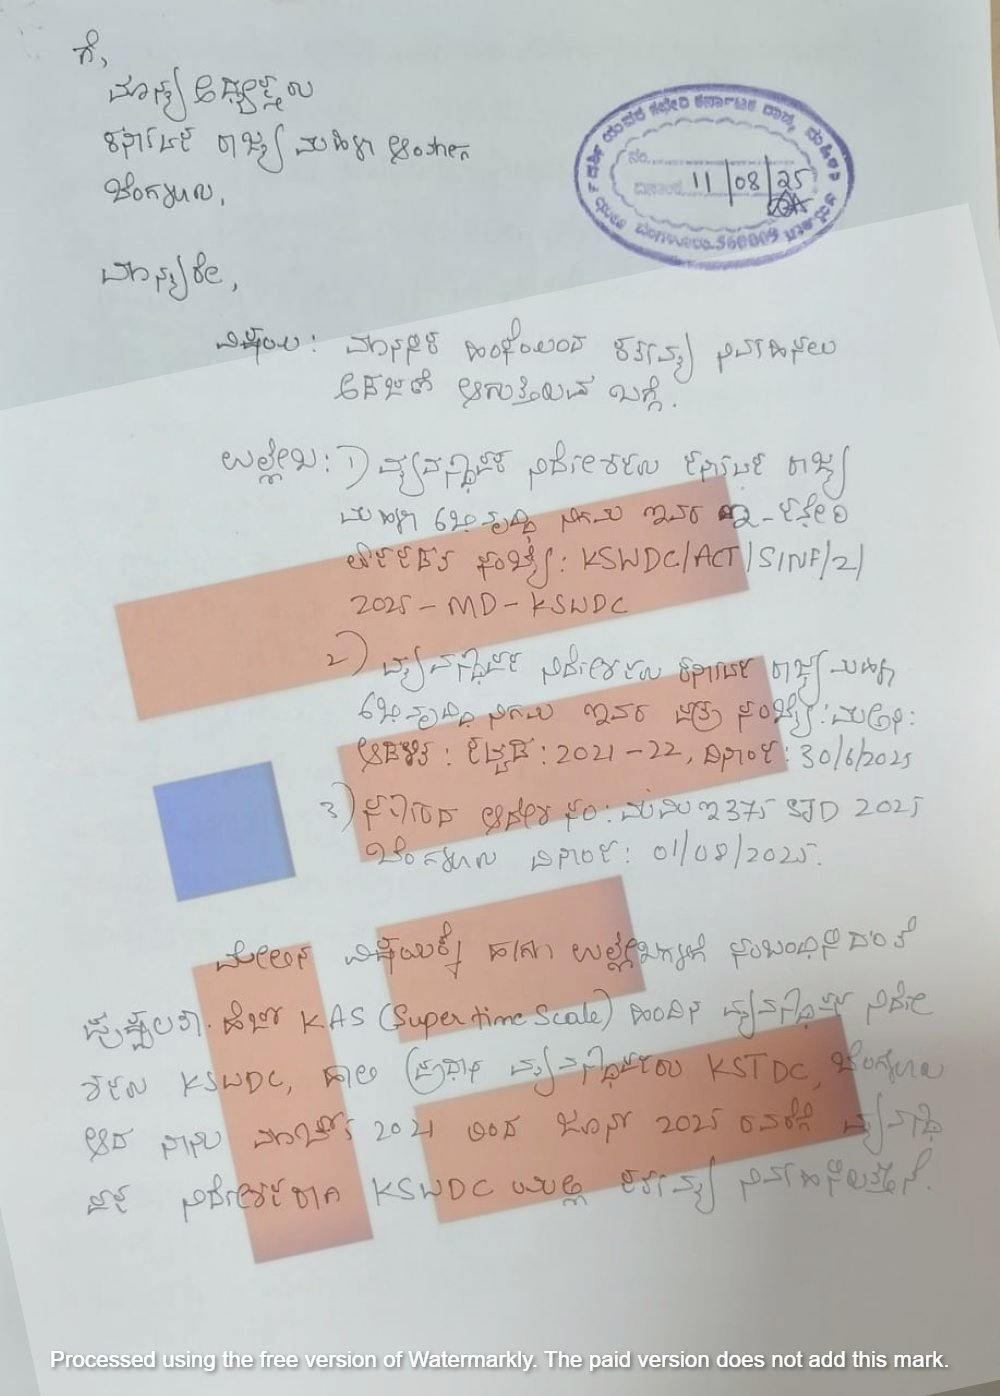 ಗೆ,
ಮಾನ್ಯ ಅಧ್ಯಕ್ಷರು
ಕರ್ನಾಟಕ ರಾಜ್ಯ ಮಹಿಳಾ ಆಯೋಗ
ಬೆಂಗಳೂರು,
ನಂ.
ದಿನಾಂಕ 11/08/25
ಬೆಂಗಳೂರು-560009
ಮಾನ್ಯರೇ,
ವಿಷಯ: ಮಾನಸಿಕ ಹಿಂಸೆಯಿಂದ ಕರ್ತವ್ಯ ನಿರ್ವಹಿಸಲು
ಅಡಚಣೆ ಆಗುತ್ತಿರುವ ಬಗ್ಗೆ.
ಉಲ್ಲೇಖ: 1) ವ್ಯವಸ್ಥಾಪಕ ನಿರ್ದೇಶಕರು ಕರ್ನಾಟಕ ರಾಜ್ಯ
ಮಹಿಳಾ ಅಭಿವೃದ್ಧಿ ನಿಗಮ ಇವರ ಇ-ಕಚೇರಿ
ಸಂಖ್ಯೆ: KSWDC/ACT/SINF/2/
2025-MD-KSWDC
2) ವ್ಯವಸ್ಥಾಪಕ ನಿರ್ದೇಶಕರು ಕರ್ನಾಟಕ ರಾಜ್ಯ ಮಹಿಳಾ
ಅಭಿವೃದ್ಧಿ ನಿಗಮ ಇವರ ಪತ್ರ ಸಂಖ್ಯೆ:
ಆಡಳಿತ: : 2021-22, ದಿನಾಂಕ: 30/6/2025
3) ಸರ್ಕಾರದ ಆದೇಶ ಸಂ: ಮಮಇ 375 2025
ಬೆಂಗಳೂರು ದಿನಾಂಕ: 01/08/2025.
ಮೇಲಿನ ವಿಷಯಕ್ಕೆ ಹಾಗೂ ಉಲ್ಲೇಖಗಳಿಗೆ ಸಂಬಂಧಿಸಿದಂತೆ
KAS (Super time Scale) ಹಿಂದಿನ ವ್ಯವಸ್ಥಾಪಕ ನಿರ್ದೇ
ಶಕರು KSWDC, ಹಾಲಿ (ಪ್ರಧಾನ ವ್ಯವಸ್ಥಾಪಕರು KSTDC, ಬೆಂಗಳೂರು
ಆದ ನಾನು ಮಾರ್ಚ್ 2021 ರಿಂದ ಜೂನ್ 2025 ರವರೆಗೆ ವ್ಯವಸ್ಥಾ
ಪಕ ನಿರ್ದೇಶಕರಾಗಿ KSWDC ಯಲ್ಲಿ ಕರ್ತವ್ಯ ನಿರ್ವಹಿಸಿರುತ್ತೇನೆ.
Processed using the free version of Watermarkly. The paid version does not add this mark.